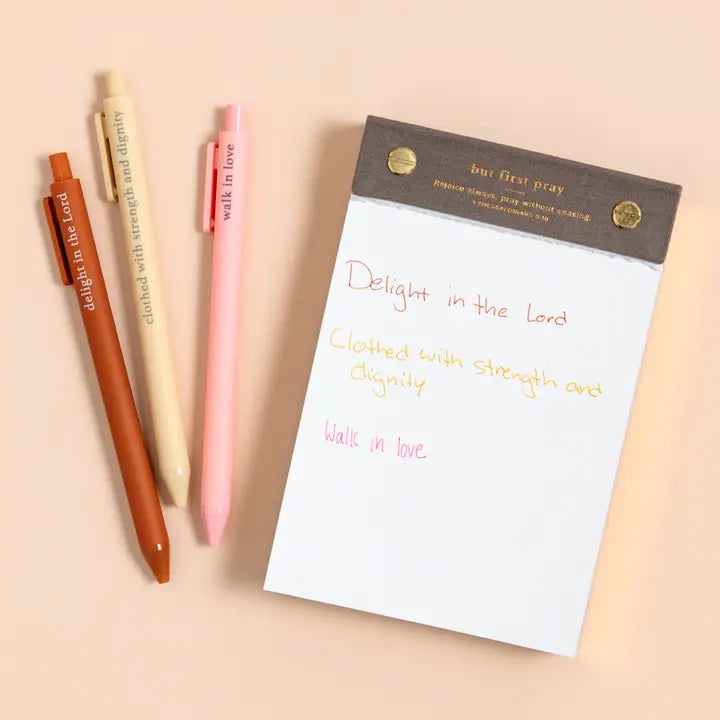 delight in the Lord
clothed with strength and dignity
walk in love
but first pray
Rejoice always, pray without ceasing.
1 THESSALONIANS 5:16
Delight in the Lord
Clothed with strength and
dignity
Walk in love